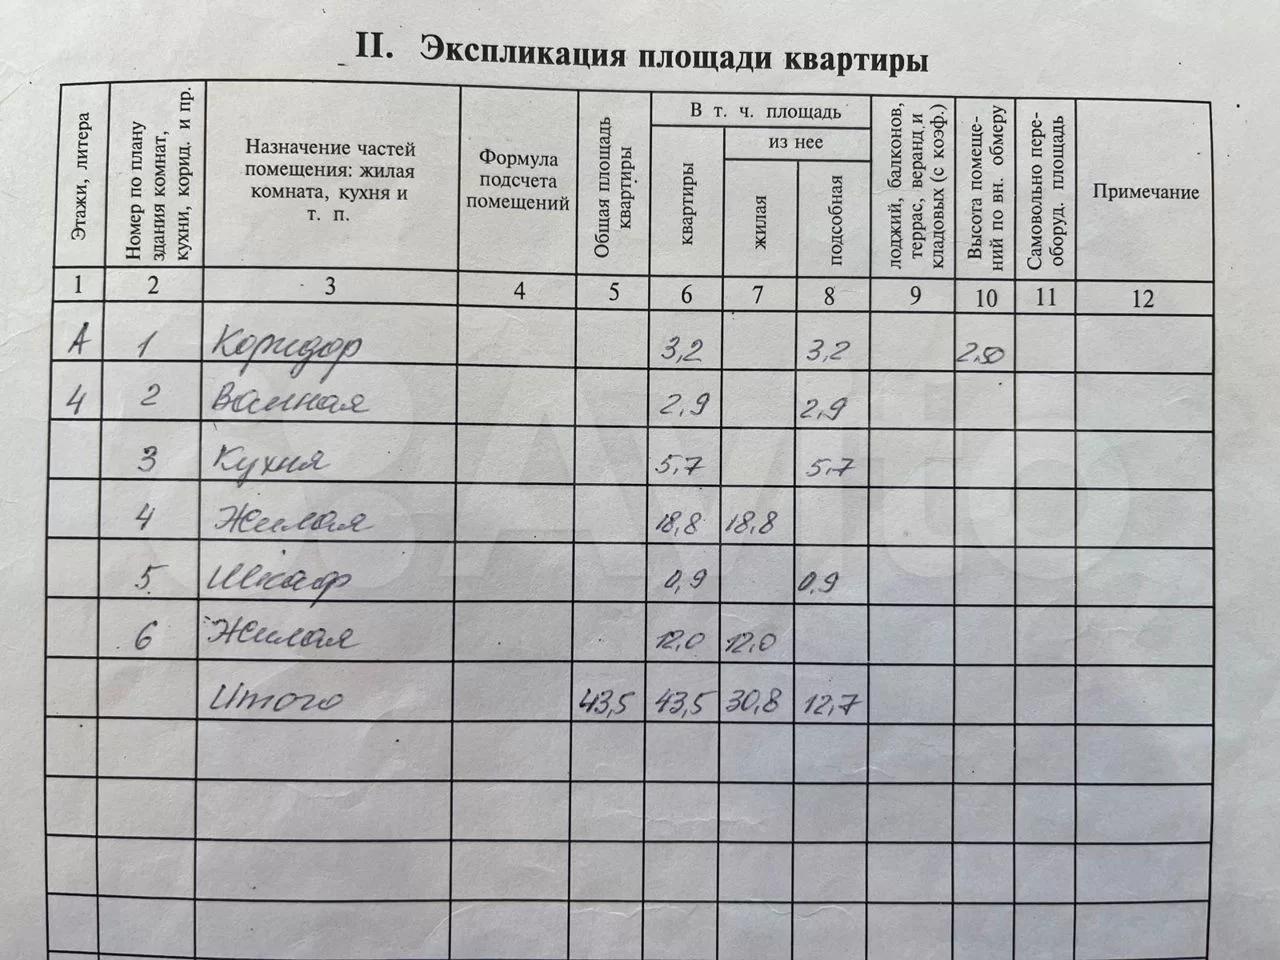 II. Экспликация площади квартиры
Этажи, литера
Номер по плану
здания комнат,
кухни, корид. и пр.
Назначение частей
помещения: жилая
комната, кухня и
т. п.
Формула
подсчета
помещений
Общая площадь
квартиры
В т. ч. площадь
квартиры
из нее
жилая
подсобная
лоджий, балконов,
террас, веранд и
кладовых (с коэф.)
Высота помеще-
ний по вн. обмеру
Самовольно пере-
оборуд. площадь
Примечание
1 2 3 4 5 6 7 8 9 10 11 12
А 1 Коридор 3,2 3,2 2,50
4 2 Ванная 2,9 2,9
3 Кухня 5,7 5,7
4 Жилая 18,8 18,8
5 Шкаф 0,9 0,9
6 Жилая 12,0 12,0
Итого 43,5 43,5 30,8 12,7
Avito